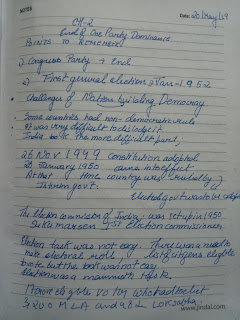 NOTES
Date: 20/May/19
CH-2
End of One Party Dominance
POINTS TO REMEMBER
1) Congress Party → End
2) First general election Year - 1952
Challenges of Nation building Democracy
Some countries had non-democratic rule
It was very difficult to
India is the more difficult part,
26 Nov 1949 constitution adopted
26 January 1950 came into effect
At that time country was ruled by
Interim govt.
Elected govt
The Election commission of India was set up in 1950
Sukumar sen 1st Election commissioner
Election task was not easy. There was need to
make electoral roll, eligible
vote but the task was not easy.
Election was a mammoth task
17 crore eligible voter who had to elect
3200 MLA and 489 Lok Sabha
www.jindal.com